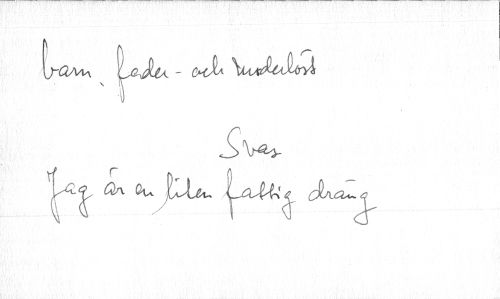 barn, fader- och moderlöst
Svar
Jag är en liten fattig dräng